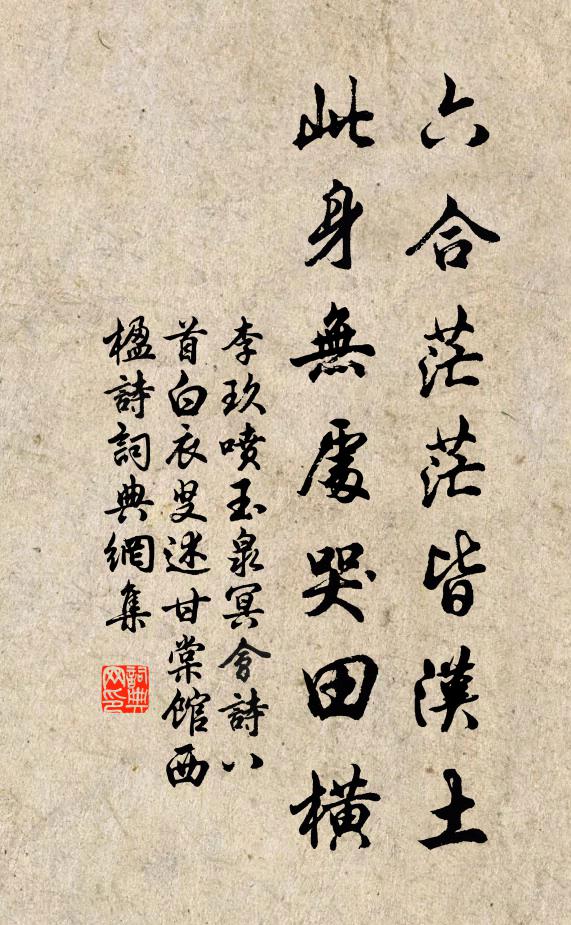 六合茫茫皆漢土
此身無處哭田橫
李玖噴玉泉冥會詩八
首白衣叟述甘棠館西
楹詩詞典網集
詞典
网印